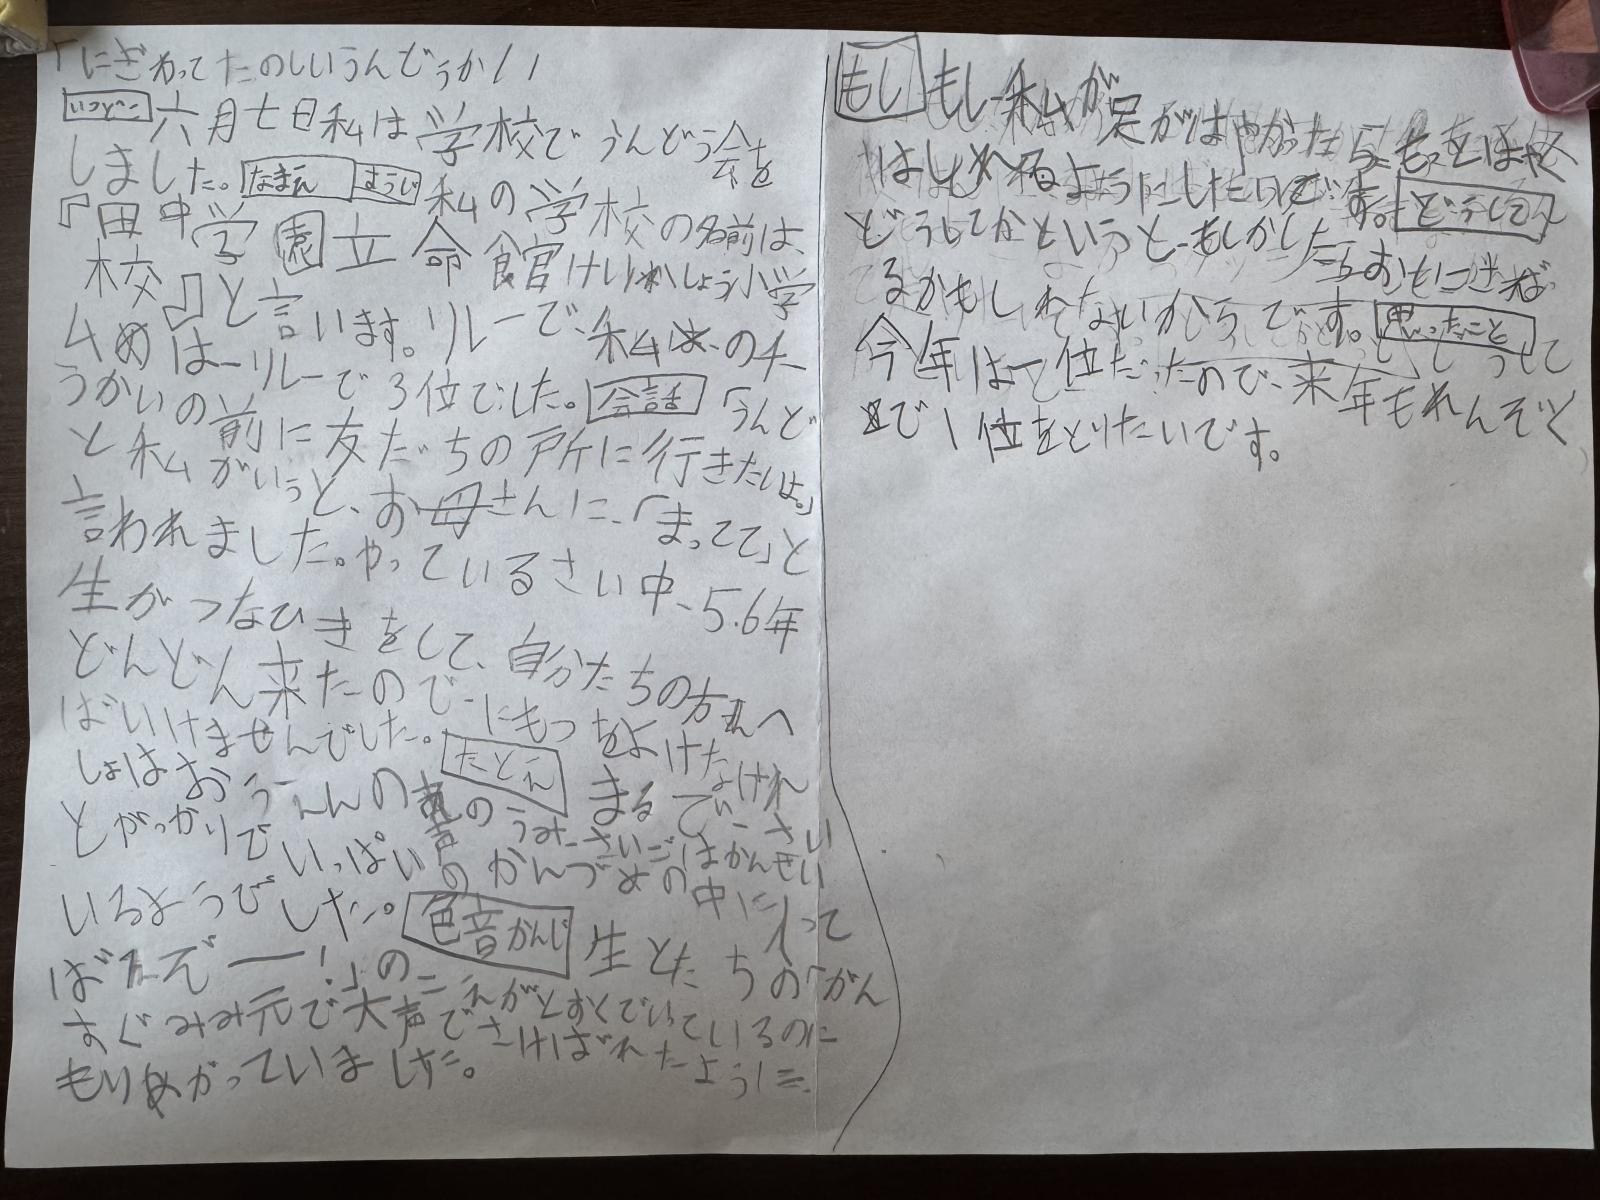 「にぎやってたのしいうんどうかい」
いつどこ 六月七日私は学校でうんどう会を
しました。なまえ すうじ 私の学校の名前は、
『田中学園立命館けいしょう小学
校』と言います。リレーで、私は、のチ
ムめはーリレーで3位でした。会話「うんど
うかいの前に友だちの所に行きたいよ。」
と私がいうと、お母さんに、「まってて」と
言われました。やっているさい中、5.6年
生がつなひきをして、自分たちの方へ
どんどん来たので、にもつをよけな
ばいけませんでした。たとえ まるで、けれ
しょはおうえんの声のうみ、さいごはかんせい
とがっかりでいっぱいのかんづめの中に入って
いるようでした。色音かんじ 生とたちの「がん
ばえぞー!」のこえがとすくでいっているのに
すぐみみ元で大声でさけばれたように
もりあがっていました。
もし もし私が足がはやかったらもっとはやく
はしれるようにしたいです。どうして
どうしてかというと、もしかしたらおもにぎば
るかもしれないからです。思ったこと
今年は一位だったので、来年もれんぞく
で1位をとりたいです。